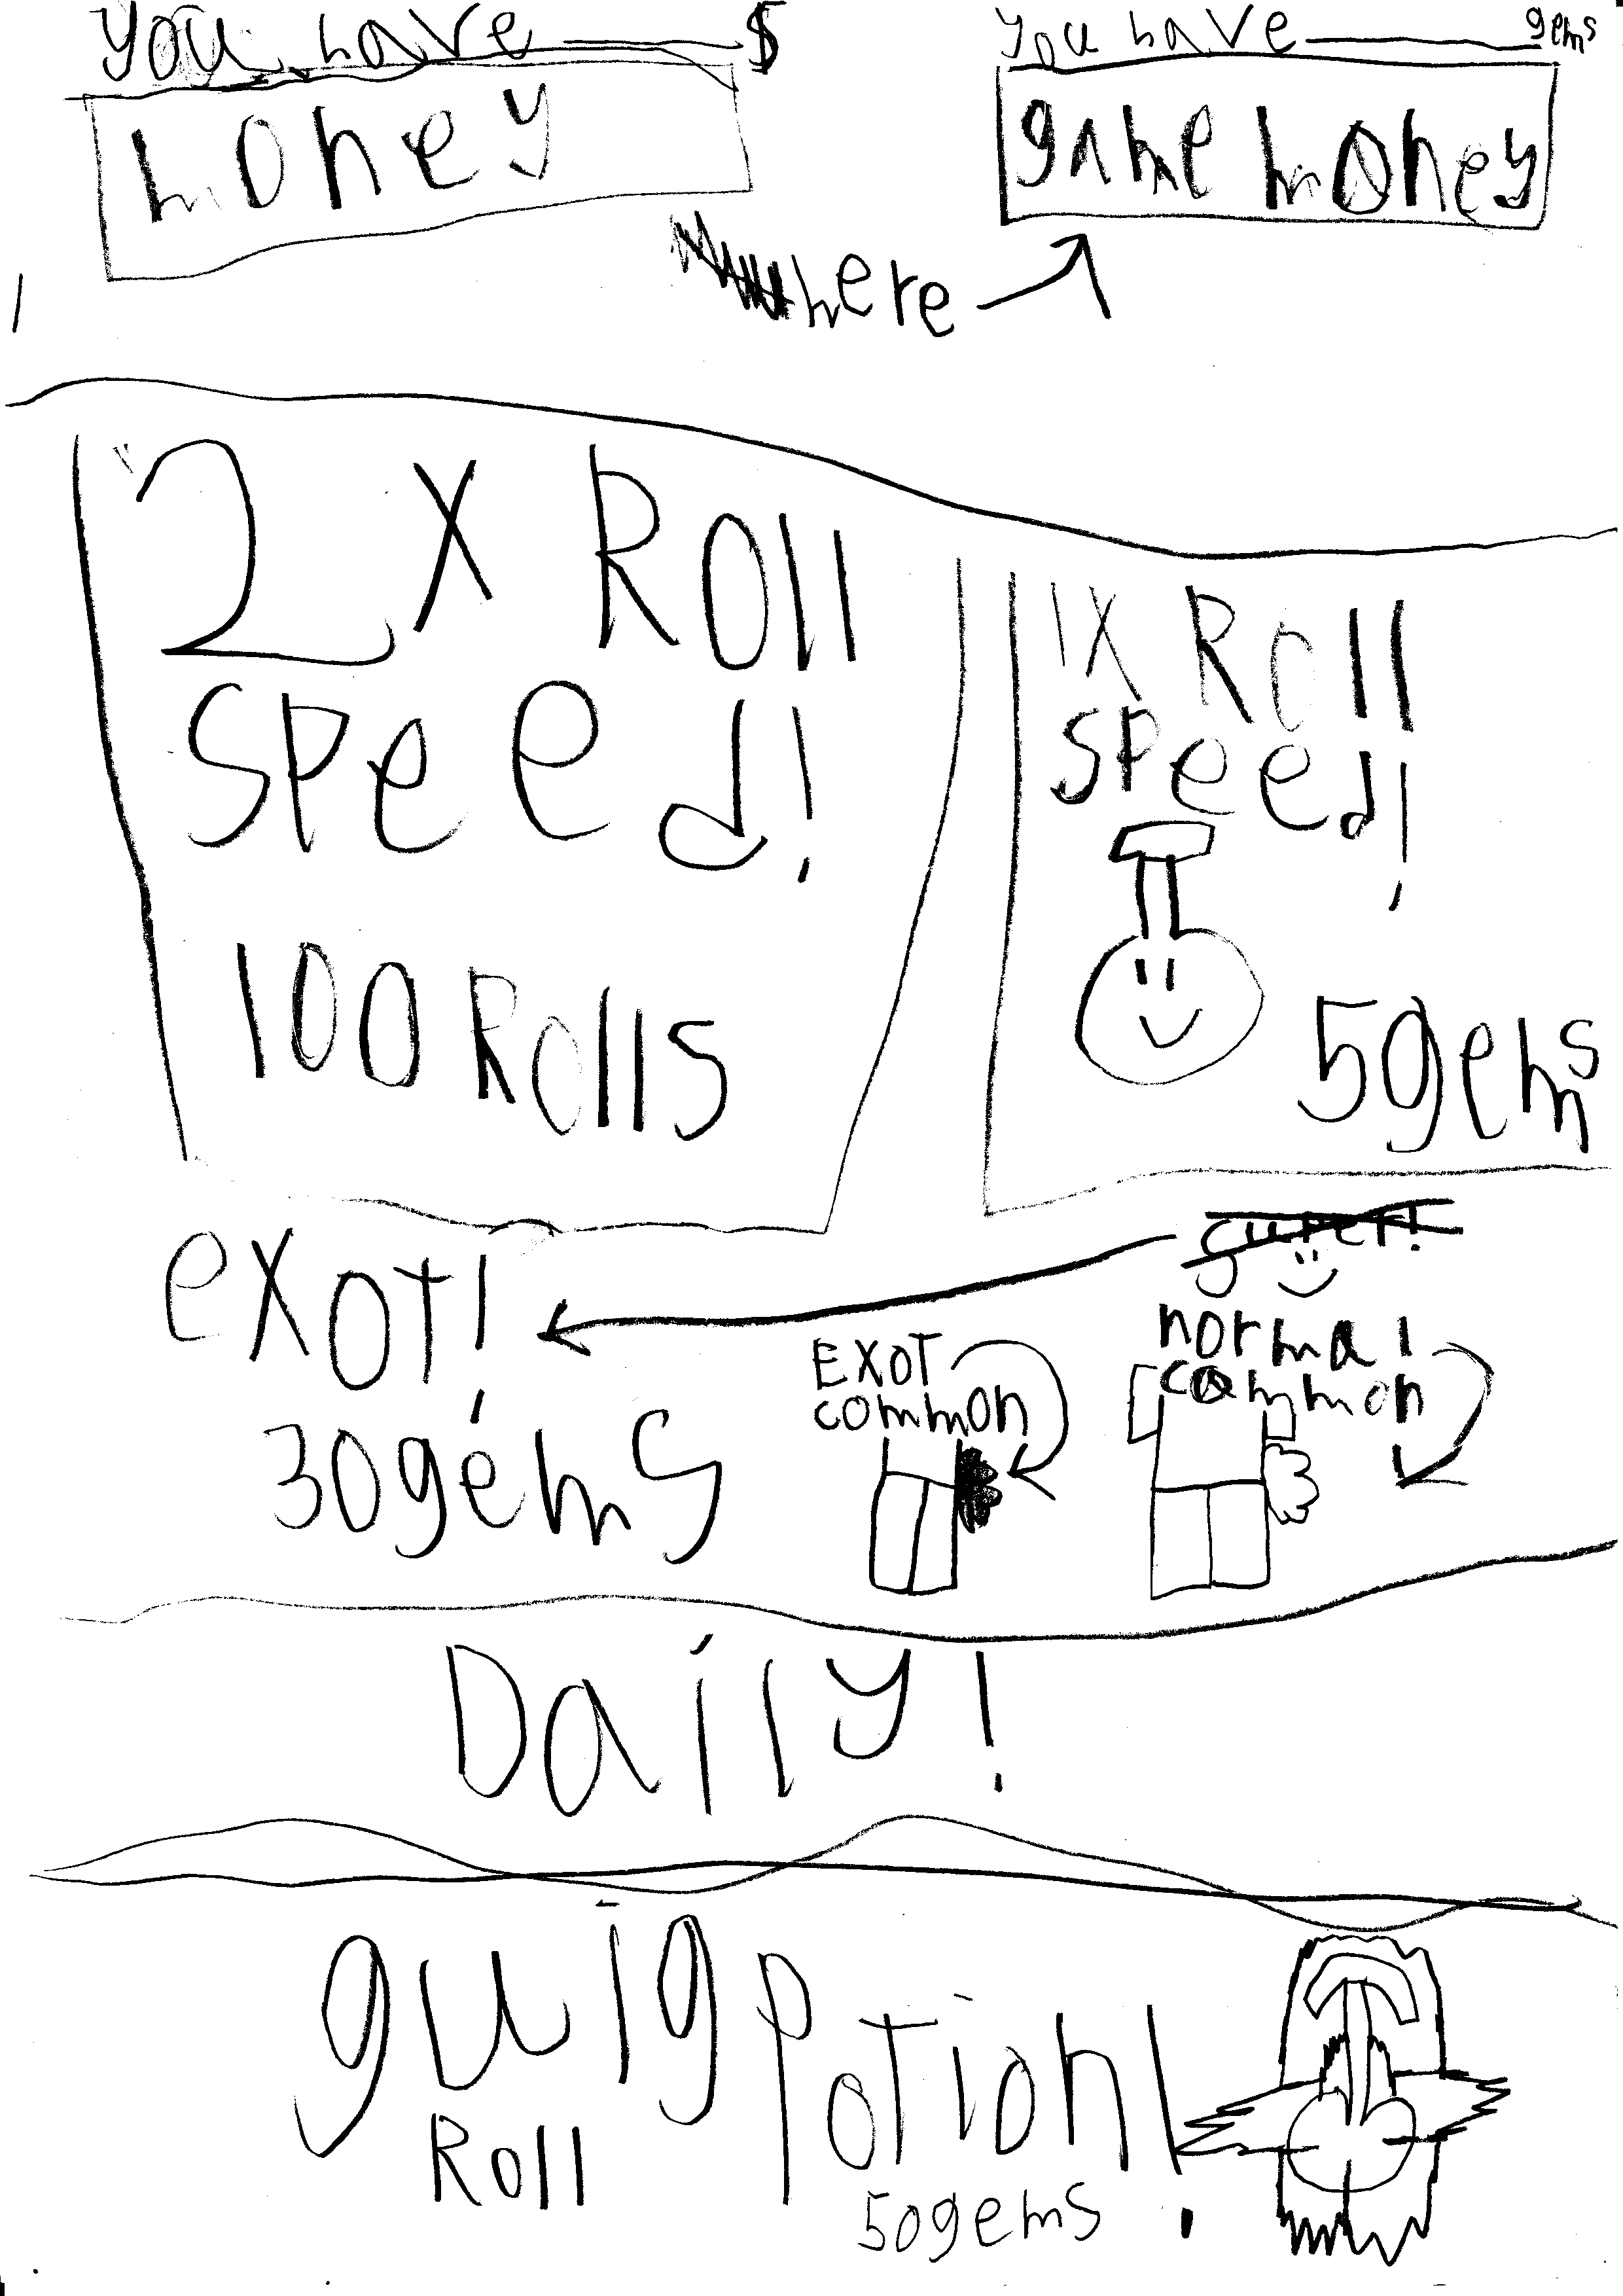 you have $
money
you have gems
game money
here
2X Roll
speed!
100 Rolls
1X Roll
speed!
5gems
exot!
30gems
super!
EXOT
common
normal
common
Daily!
guig Potion!
Roll
50gems